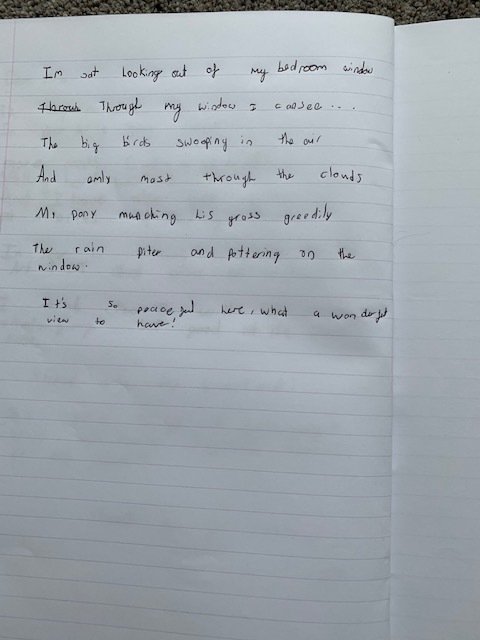 Im sat Looking out of my bedroom window
Throus Through my window I cansee...
The big birds swooping in the air
And amly most through the clouds
My pony munching his grass greedily
The rain piter and pottering on the
window.
It's so peaceful here, what a wonderful
view to have!